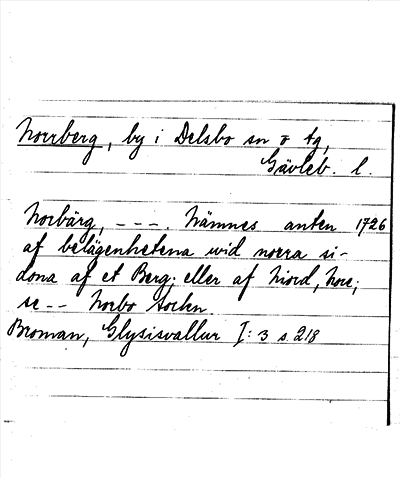 Norrberg, by i Delsbo sn o tg,
Gävleb. l.
Norbärg, - - - . Nämnes anten 1726
af belägenhetena wid norra si-
dona af et Berg; eller af Niord, Nore;
se -- Norbo socken.
Broman, Glysisvallur I: 3 s. 218